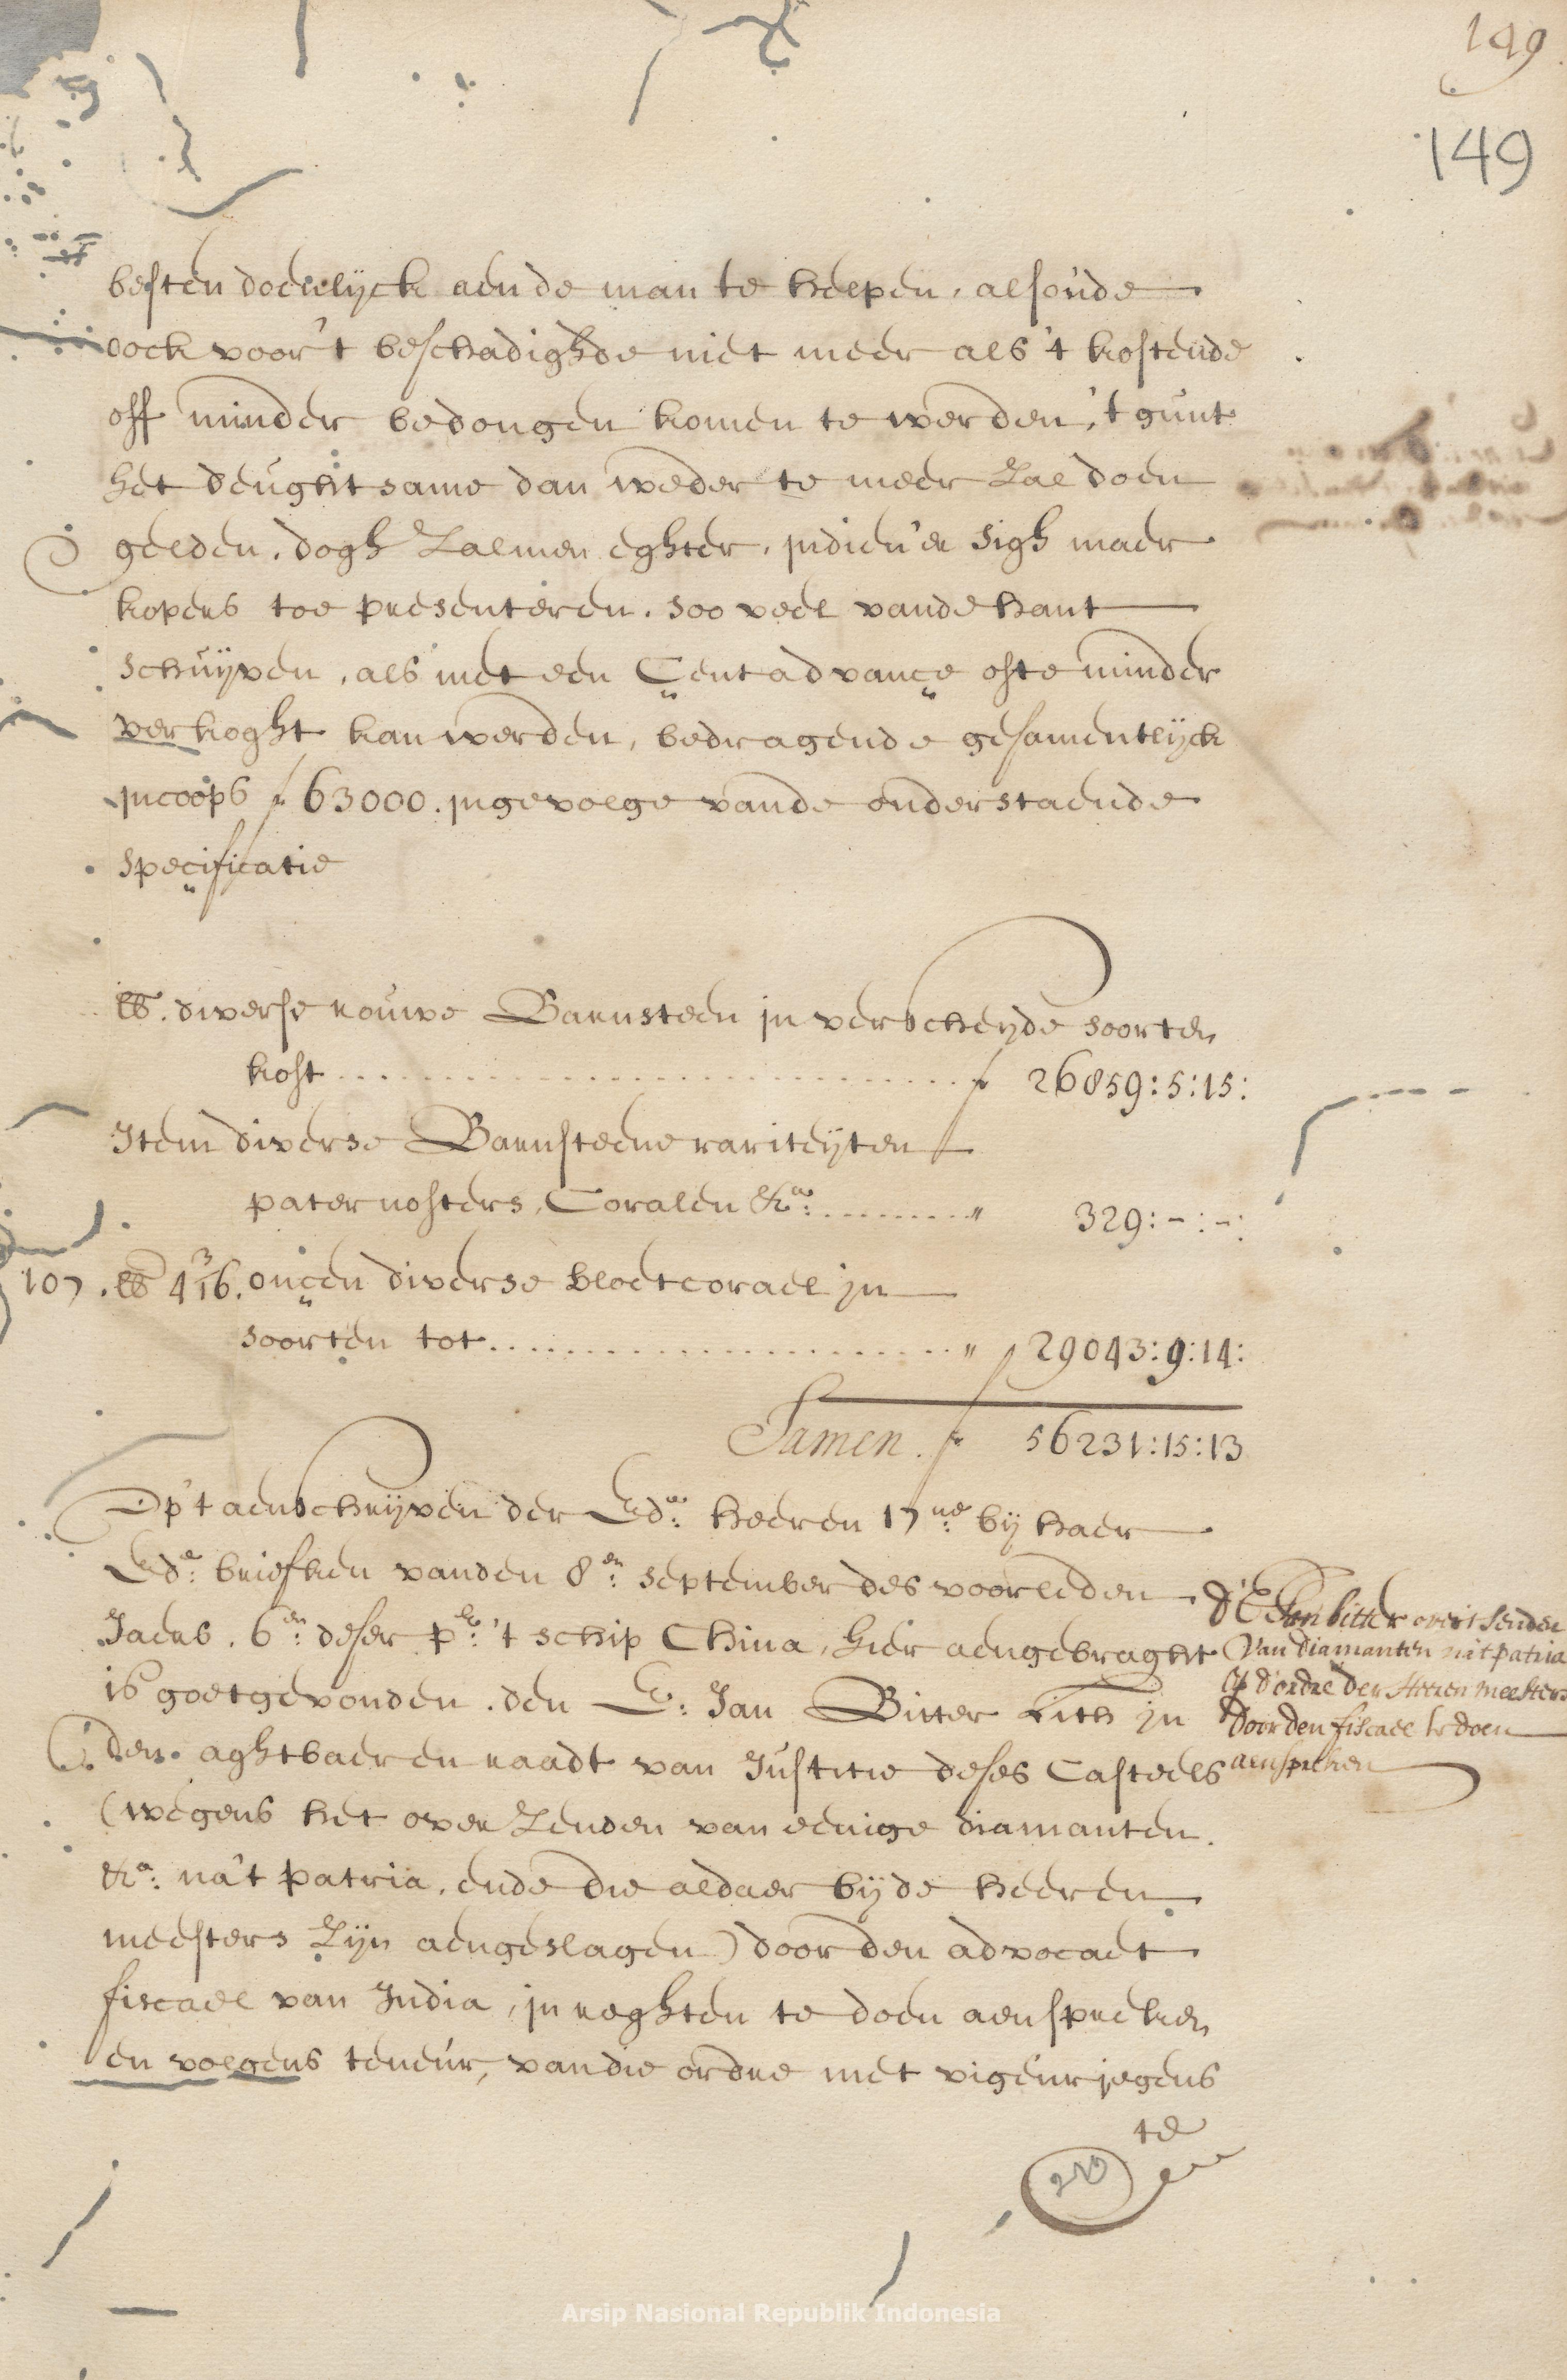 149
149
besten doenlijck aen de man te helpen, alsoude
oock voor't beschadighde niet meer als 't kostende
off minder bedongen komen te werden, 't gunt
het deughtsame dan weder te meer zal doen
gelden, dogh zal men eghter, jndien 'er sigh maer
kopers toe presenteren. soo veel vande hant
schuyven, als met een Cent advance ofte minder
verkoght kan werden, bedragende gesamentlijck
jncoops ƒ 63000. jngevolge vande onderstaende
specificatie
lb. diverse rouwe Barnsteen jn verscheyde soorten
kost ƒ 26859:5:15:
Item diverse Barnsteene rariteyten
pater nosters, Coralen &a: " 329:-:-:
107. lb 4 3/16. oncen diverse bloetcorael jn
soorten tot " 29043:9:14:
Samen. ƒ 56231:15:13
Op 't aenschrijven der Eds: heeren 17ne: bij haer
Ede: briefken vanden 8en: september des voorleden
Jaers. 6en: deser pr: 't schip China, hier aengebraght
is goetgevonden. den E: Jan Bitter lith jn
den aghtbaeren raadt van Justitie deses Casteels
(wegens het overzenden van eenige diamanten.
&a: na 't patria, ende die aldaer bij de heeren
meesters zijn aengeslagen) door den advocaet
fiscael van India, jn reghten te doen aenspreken
en volgens teneur, van die ordre met vigeur jegens
te
d'E Jan bitter over 't senden
van diamanten na 't patria
op d'ordre der Heeren meesters
door den fiscael te doen
aenspreken
Arsip Nasional Republik Indonesia